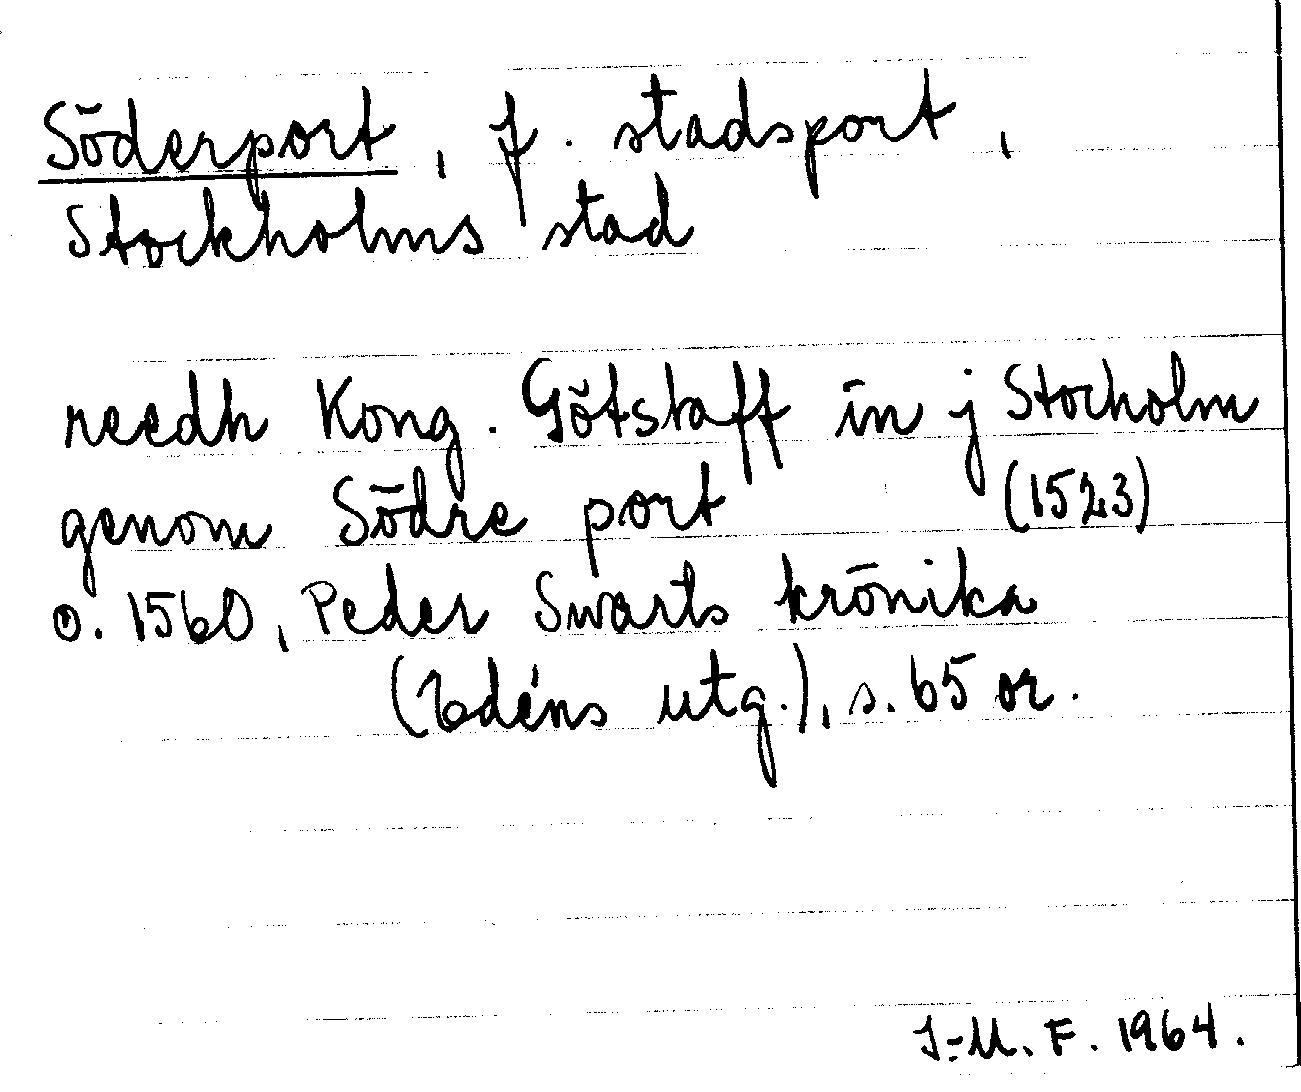 Söderport, f. stadsport,
Stockholms stad
reedh Kong. Götstaff in j Stocholm
genom Södre port (1523)
o. 1560, Peder Swarts krönika
(Edéns utg.), s. 65 or.
I-M. F. 1964.